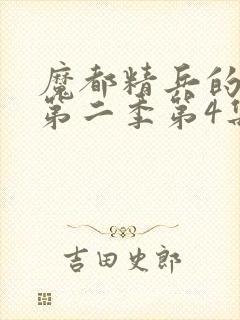 魔都精兵的
第二季第4集
吉田史郎